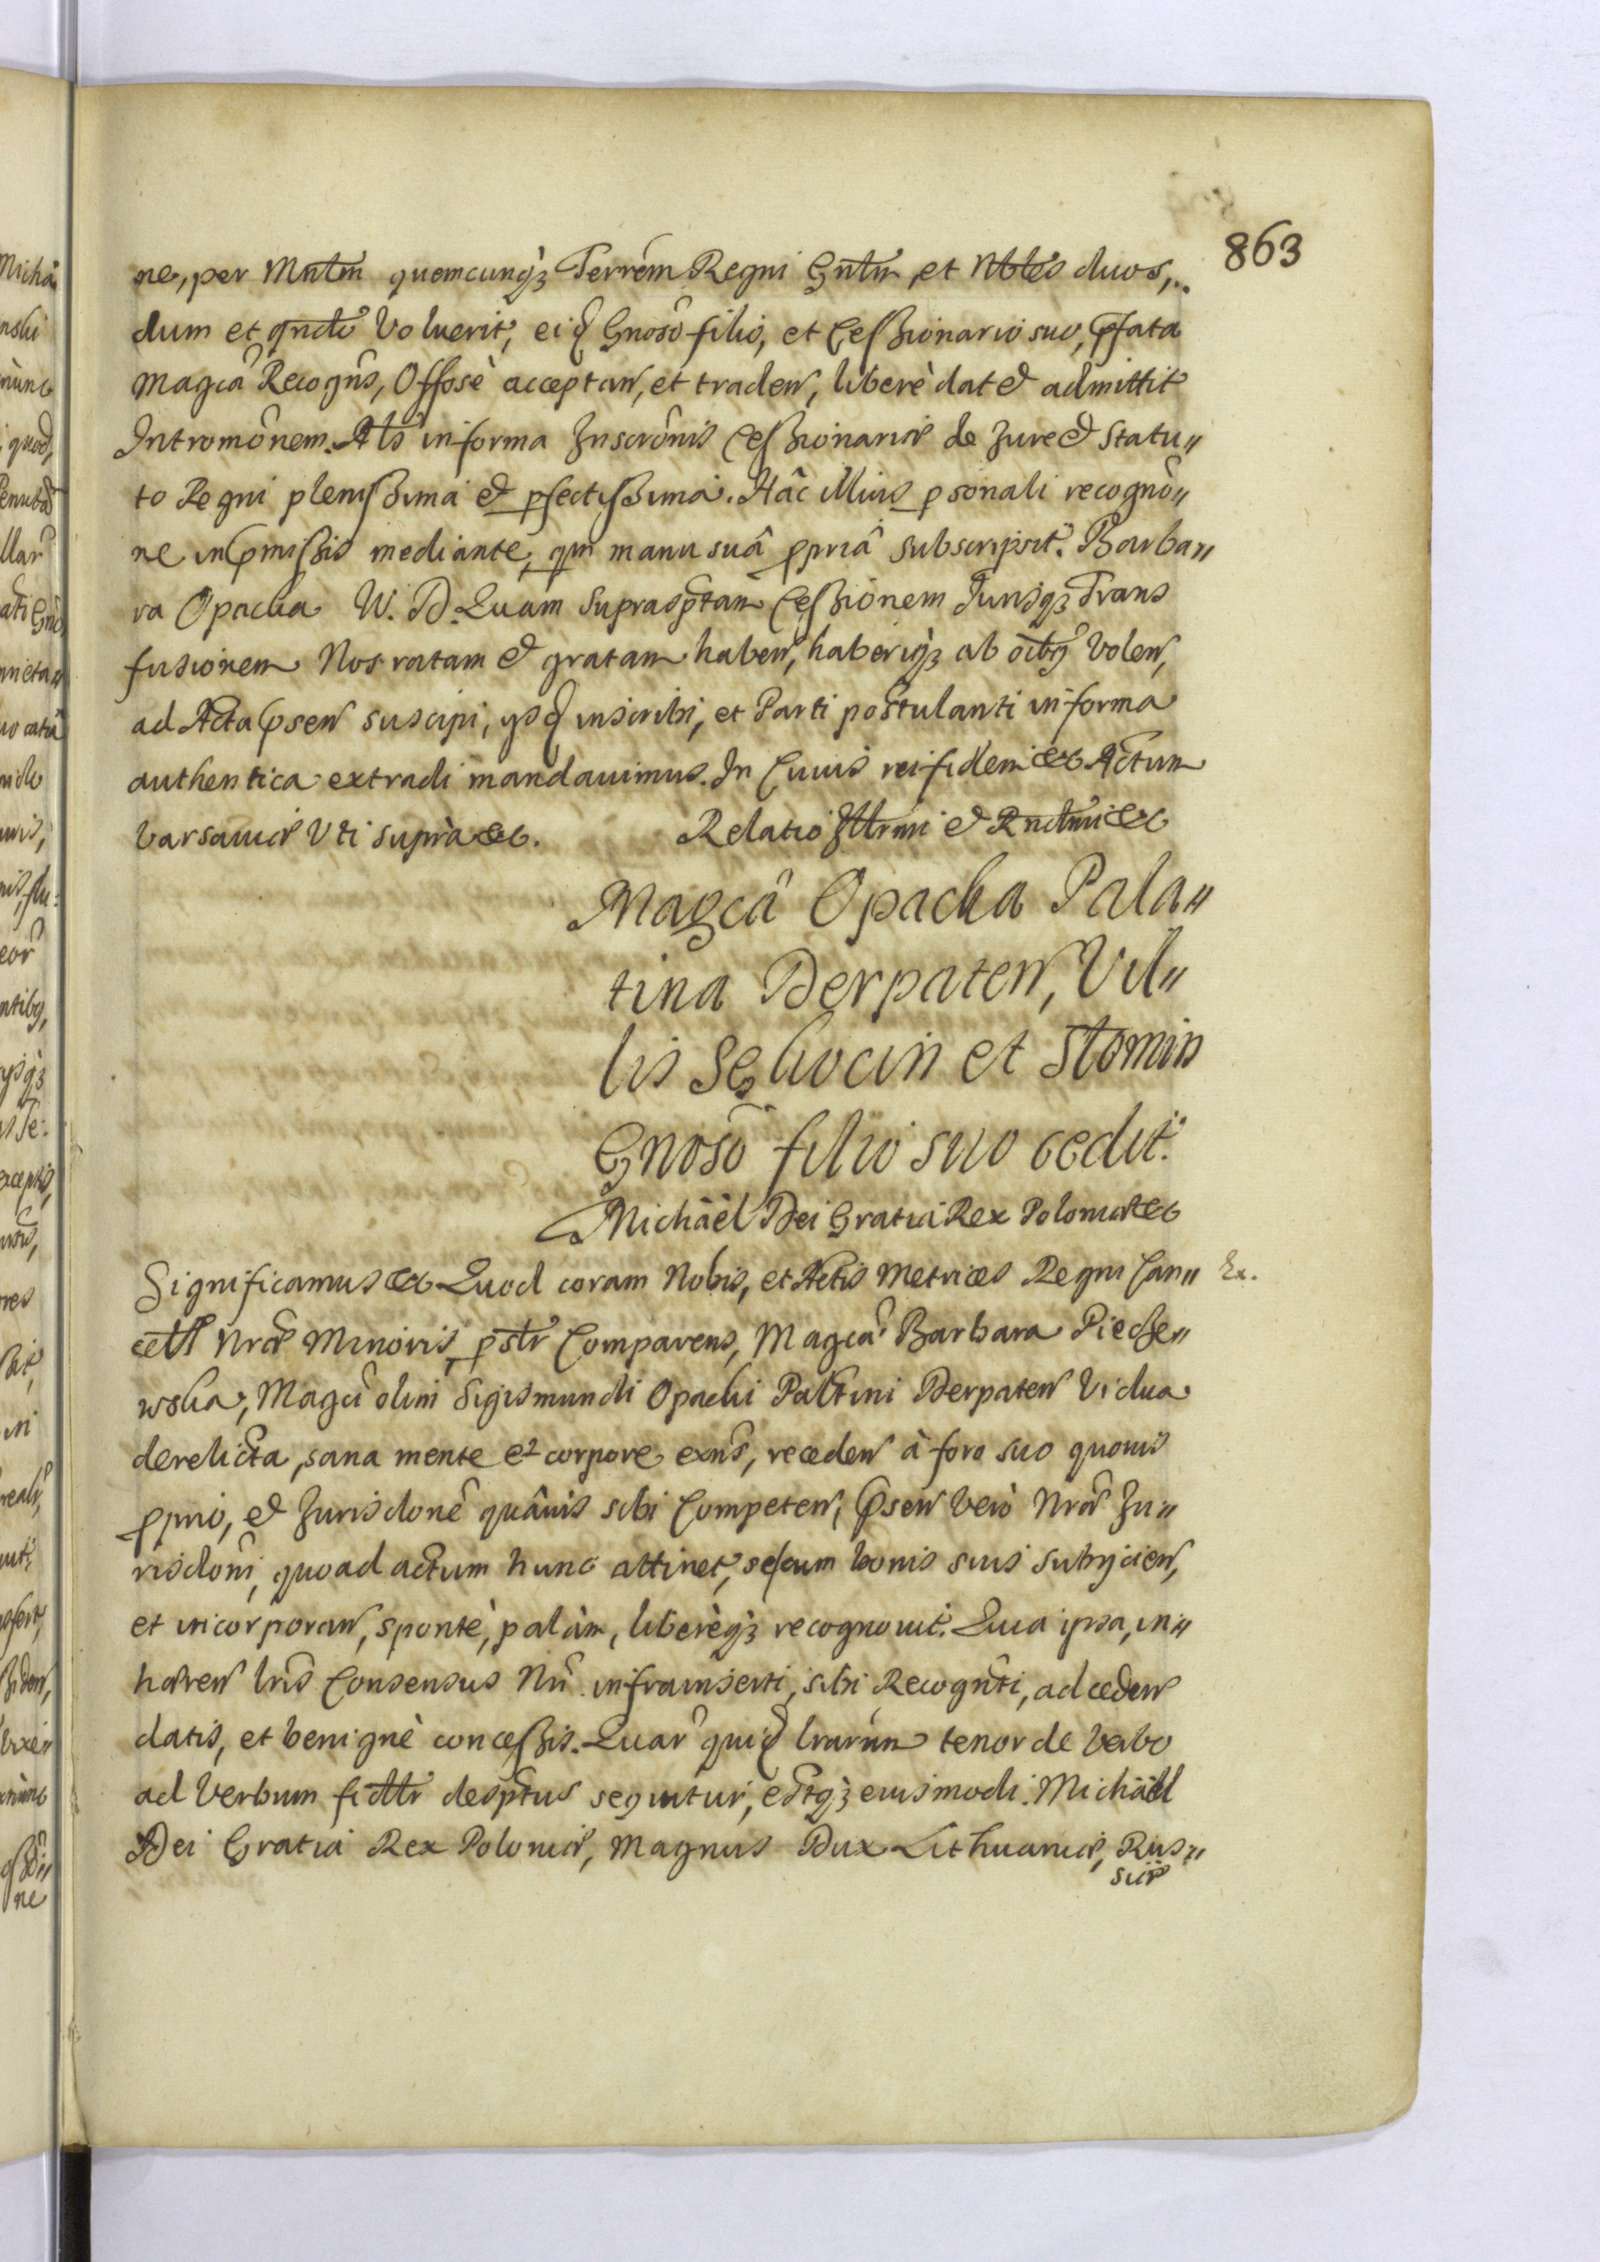 863
ne, per Mntm quemcunqȝ Terrem Regni Gntm et Nbles duos,
dum et qndo Voluerit, eiq Gnoso filio, et Cessionario suo, pfata
Magca Recogns, Offose acceptan, et traden, liberè dat et admittit
Intromonem. Als in forma Inscronis Cessionariæ de Jure et Statu„
to Regni plenissima et pfectissima. Hâc illius psonali recogno„
ne in pmissis mediante, qm manu suâ ppriâ subscripsit. Barba„
ra Opacka W. D. Quam suprasptam Cessionem Jurisqȝ Trans
fusionem Nos ratam et gratam haben, haberiqȝ ab oibq Volen,
ad Acta psen suscipi, ysq inscribi, et Parti postulanti in forma
authentica extradi mandauimus. In Cuius rei fidem etc Actum
Varsauiæ Vti suprà etc. Relatio Illrmi et Rndmi etc
Magca Opacka Pala„
tina Derpaten, Vil„
lis Sękocin et Stomin
Gnoso filio suo cedit.
Michäel Dei Gratia Rex Poloniæ etc
Significamus etc Quod coram Nobis, et Actis Metrices Regni Can„ Ex.
cell Nræ Minoris, pstr Comparens, Magca Barbara Pieche„
wska, Magci olim Sigismundi Opacki Paltini Derpaten Vidua
derelicta, sana mente et corpore exns, receden à foro suo quouis
pprio, et Jurisdone quâuis sibi Competen, Psen verò Nræ Ju„
risdoni, quoad actum hunc attinet, se cum bonis suis subijcien,
et incorporan, spontè, palàm, liberèqȝ recognouit. Quia ipsa, in„
hæren lris Consensus Nri infrainserti, sibi Recognti, ad ceden
datis, et benignè concessis. Quar quiq lrarum tenor de verbo
ad Verbum fidlr desptus sequitur, estqȝ eiusmodi. Michäel
Dei Gratia Rex Poloniæ, Magnus Dux Lithuaniæ, Rus„
siæ